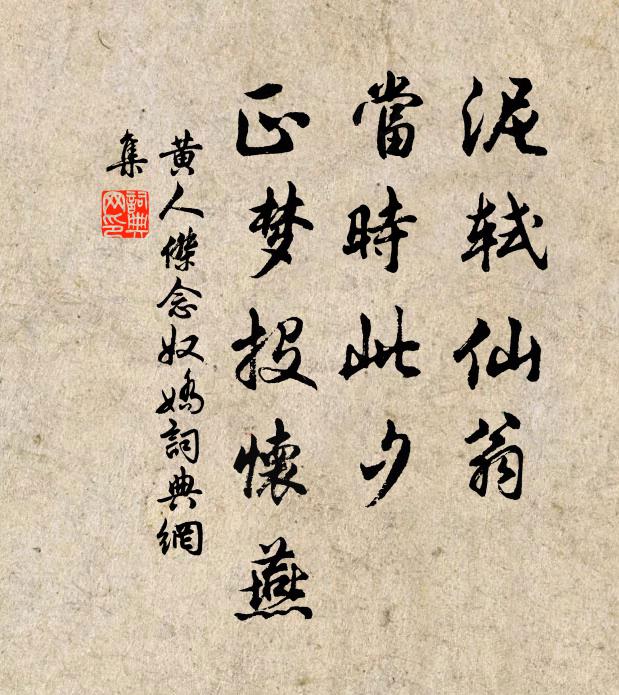 泥軾仙翁
當時此夕
正梦投懷燕
黄人傑念奴嬌詞典網
集
詞典
网印